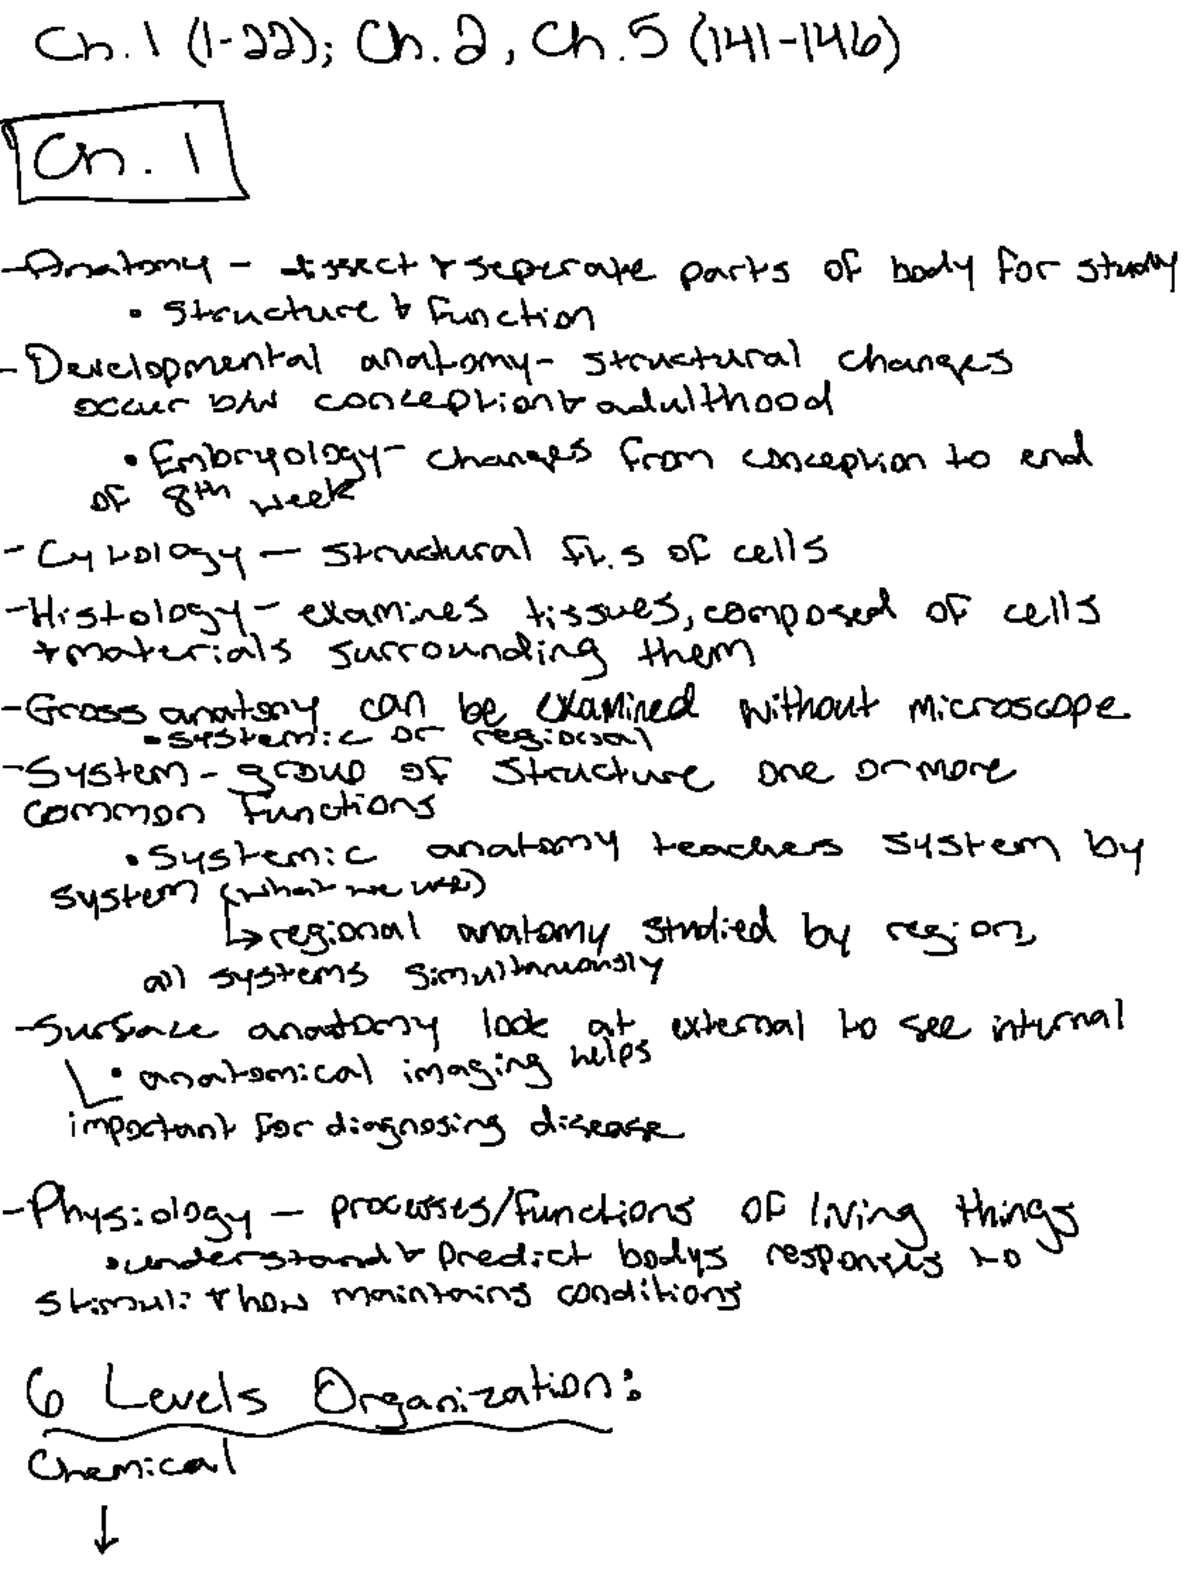 Ch. 1 (1-22); Ch. 2, Ch. 5 (141-146)
Ch. 1
-Anatomy - dissect + seperate parts of body for study
• Structure + function
- Developmental anatomy- structural changes
occur b/w conception + adulthood
• Embryology- changes from conception to end
of 8th week
- Cytology - structural ft.s of cells
-Histology- examines tissues, composed of cells
+ materials surrounding them
-Gross anatomy can be examined without microscope
• systemic or regional
-System - group of structure one or more
common functions
• Systemic anatomy teachers system by
system (what we use)
↳ regional anatomy studied by region,
all systems simultaneously
-Surface anatomy look at external to see internal
• anatomical imaging helps
important for diagnosing disease
-Physiology - processes/functions of living things
• understand + predict bodys responses to
stimuli + how maintains conditions
6 Levels Organization:
Chemical
↓